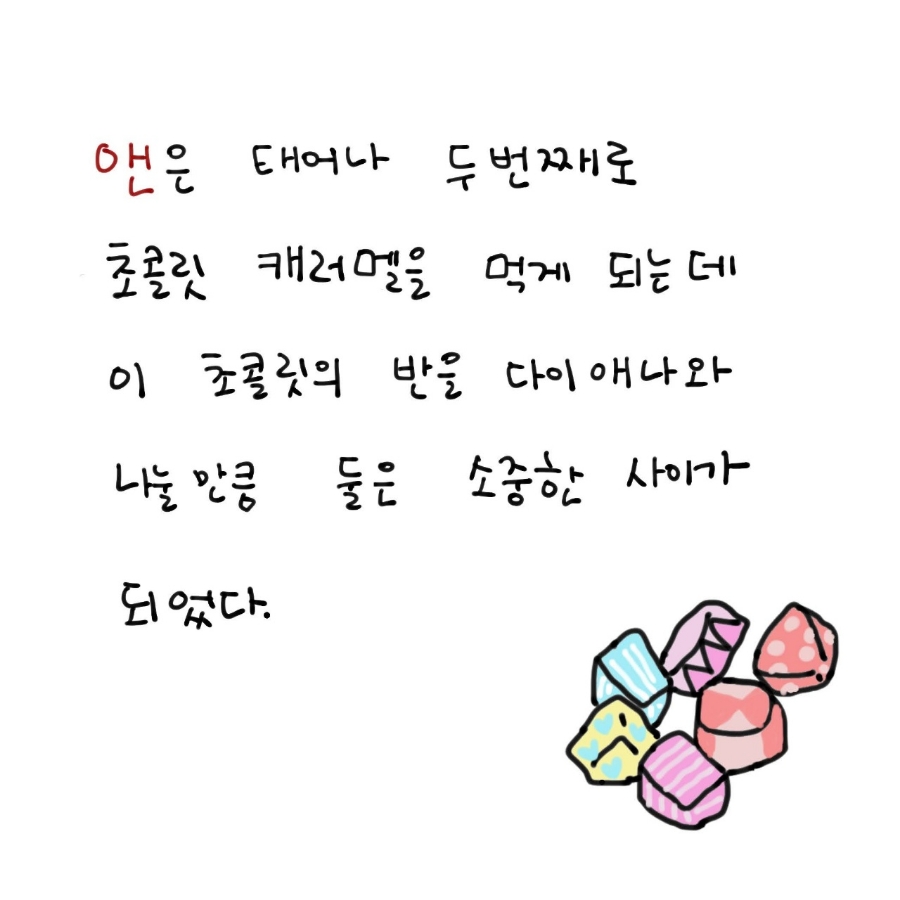 앤은 태어나 두번째로
초콜릿 캐러멜을 먹게 되는데
이 초콜릿의 반을 다이애나와
나눌만큼 둘은 소중한 사이가
되었다.